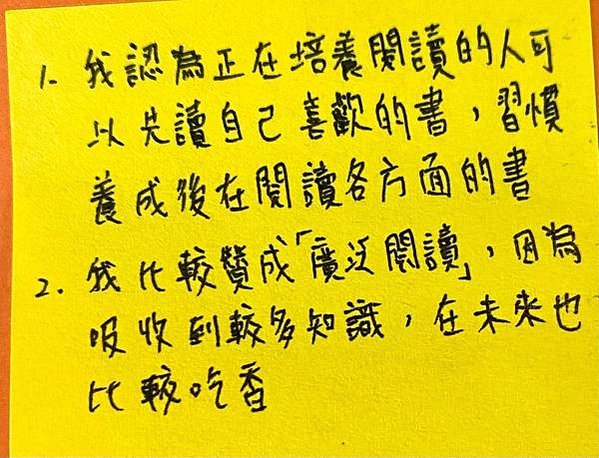 1. 我認為正在培養閱讀的人可
以先讀自己喜歡的書，習慣
養成後在閱讀各方面的書
2. 我比較贊成「廣泛閱讀」，因為
吸收到較多知識，在未來也
比較吃香